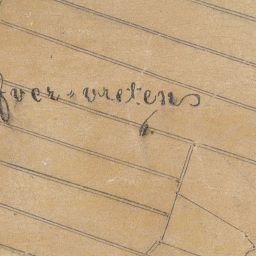 fver-vreten
6